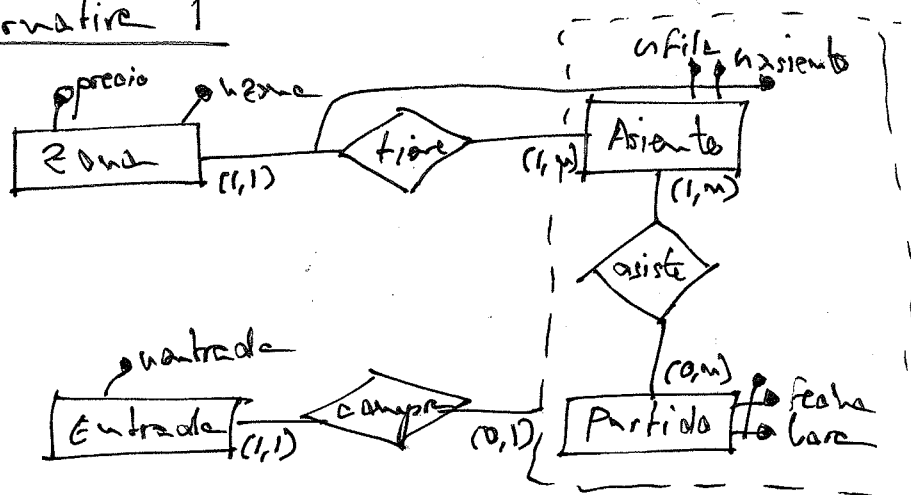 rnative 1
precio
nzona
nfila
nasiento
Zona
(1,1)
tiene
(1,n)
Asiento
(1,n)
asiste
(0,n)
nentrada
Entrada
(1,1)
compra
(0,1)
Partido
fecha
hora